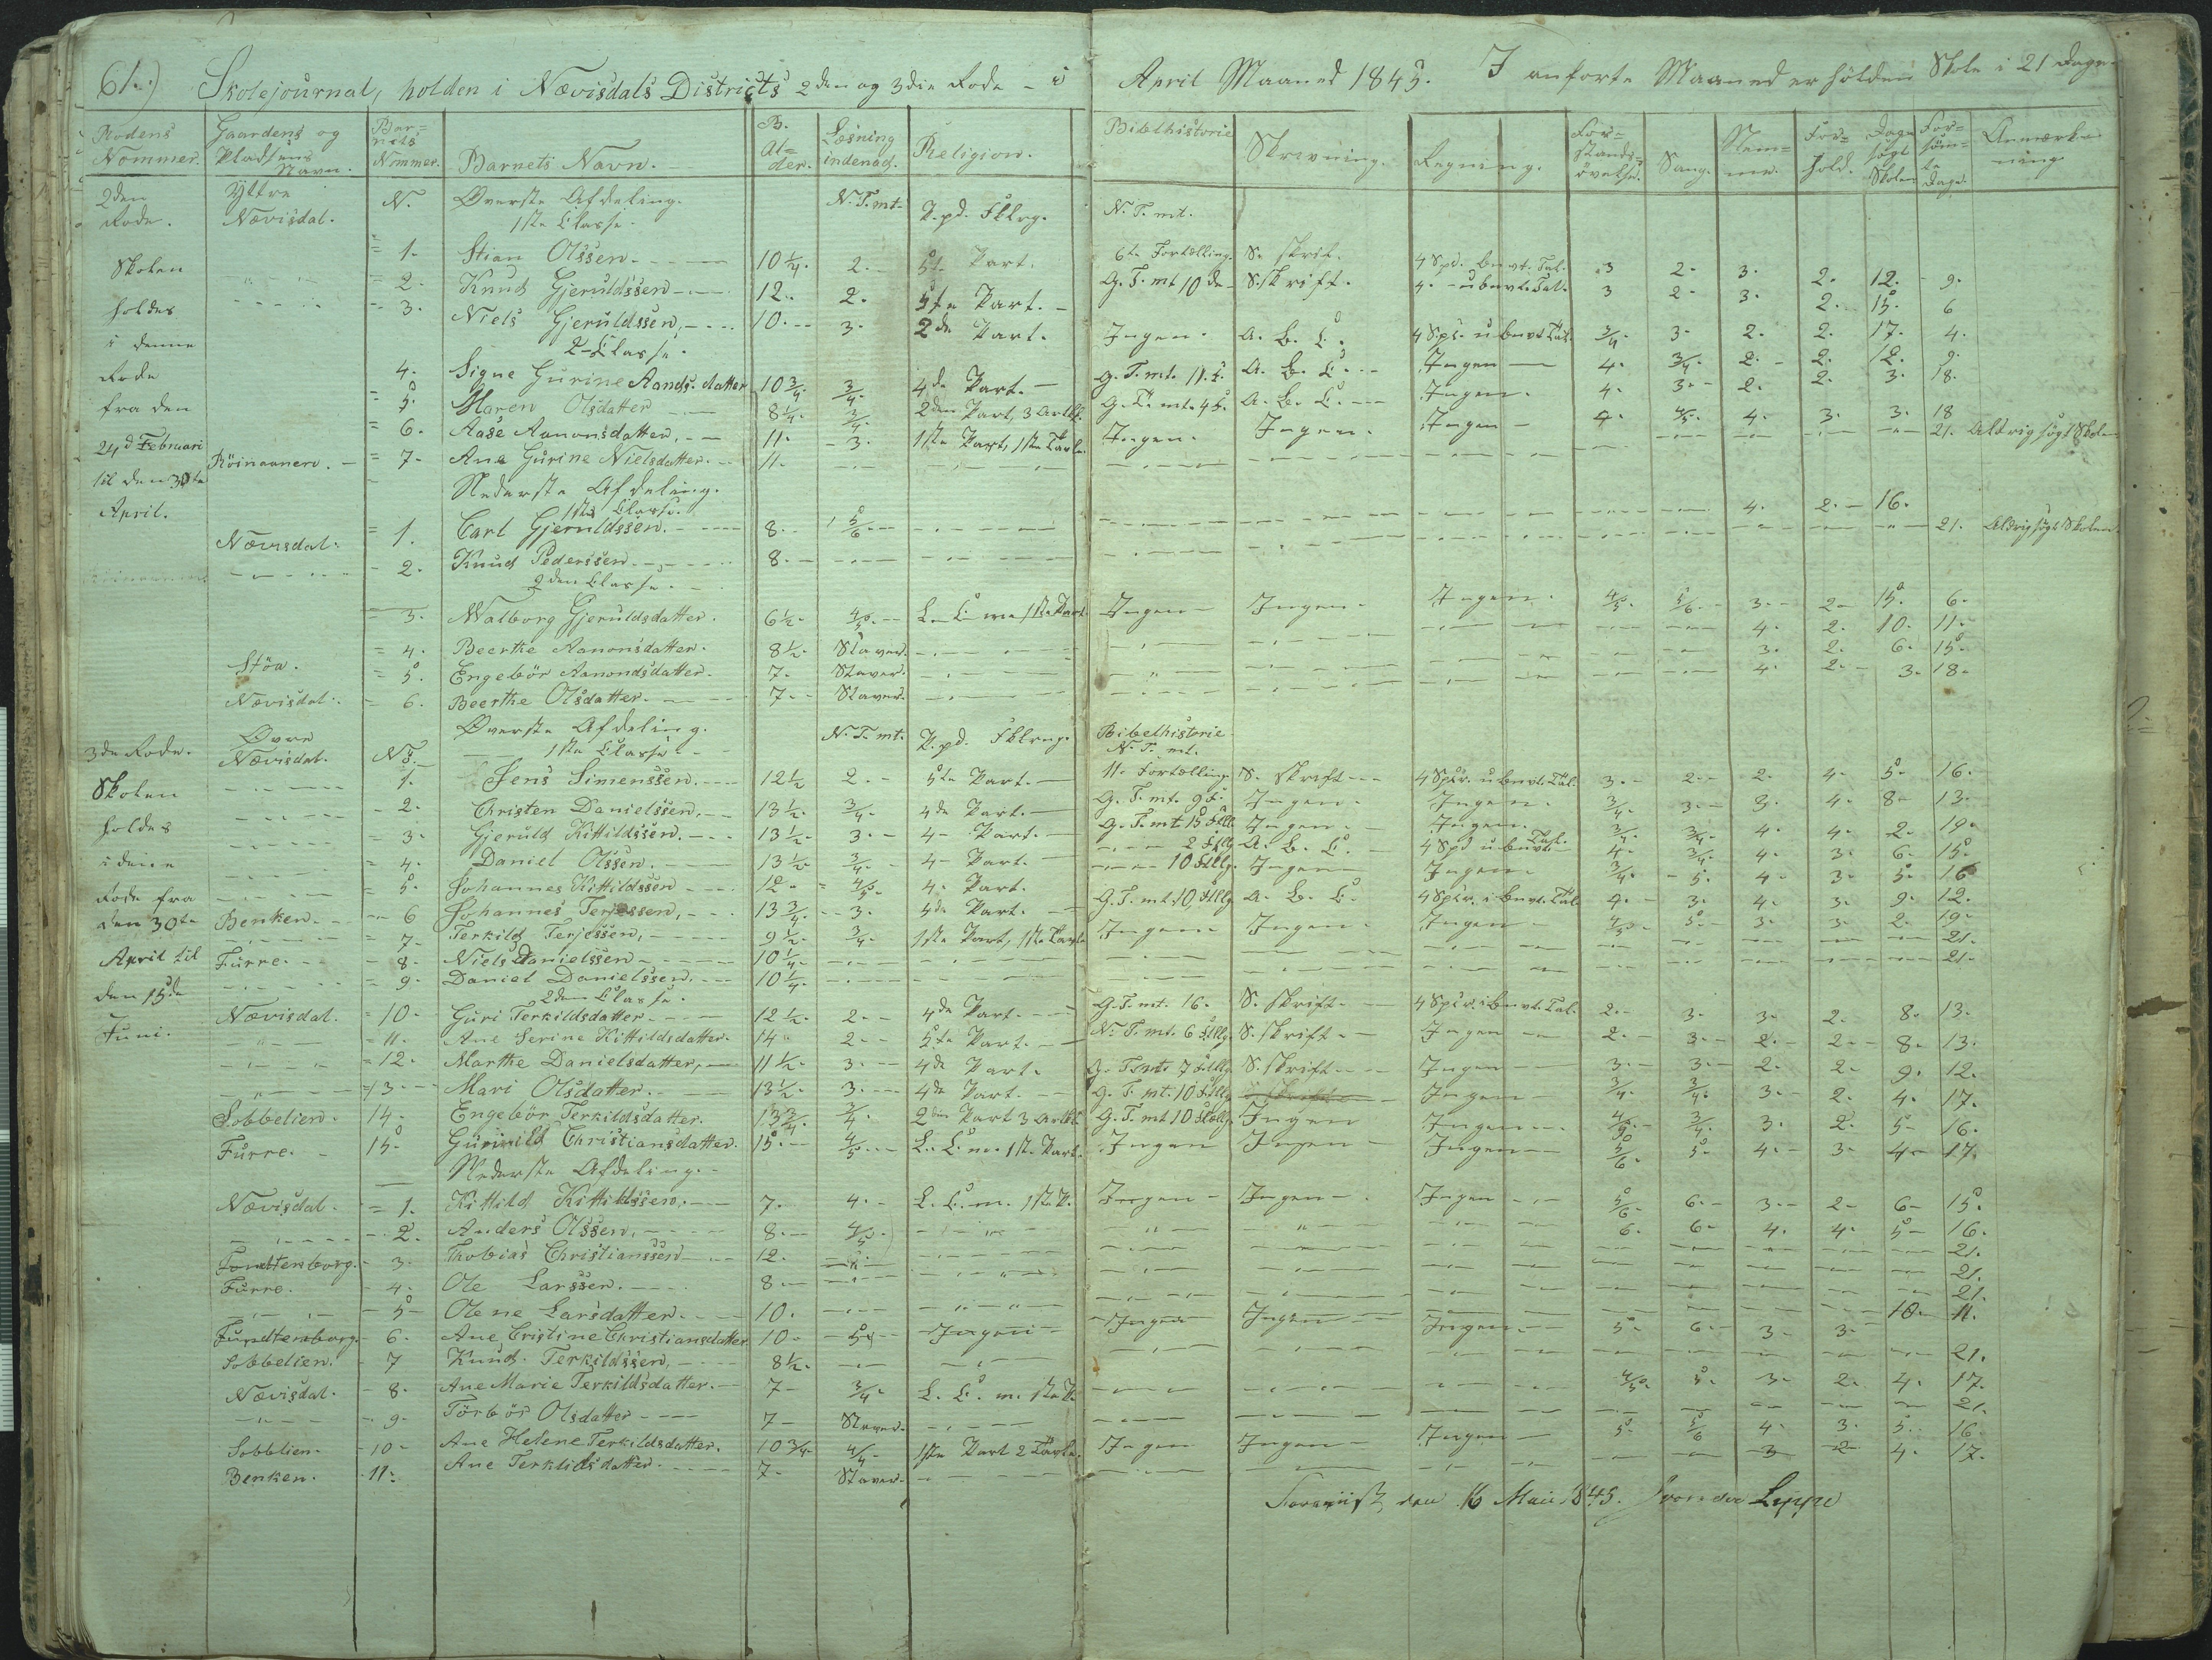 61.) Skolejournal, holden i Nævisdals Districts 2den og 3die Rode - i April Maaned 1845. I anforte Maaned er holden Skole i 21 Dage.
Rodens Nommer. Gaardens og Pladsens Navn. Barnets Nommer. Barnets Navn. B. Alder. Læsning indenad. Religion. Bibelhistorie Skrivning. Regning. Forstands-övelse. Sang. Nemme. Forhold. Dage sögt Skolen Forsömte Dage. Anmærkning
2den Rode. Yttre Nævisdal. N. Överste Afdeling. 1ste Classe. N. T. mt. P. pd. Fklrg. N. T. mt.
Skolen holdes i denne Rode fra den 24d Februari til den 30te April.
1. Stian Olssen. 10 1/4. 2. 5te Part. 6te Fortælling S. Skrift. 4 Spd. Bnvt. Tal. 3 2. 3. 2. 12. 9.
2. Knud Gjeruldssen 12. 2. 5te Part. G. T. mt 10 de S. Skrift. 4. ubnvt. Tal. 3 2. 3. 2. 15. 6
3. Niels Gjeruldssen, 10. 3. 2de Part. Ingen. A. B. C. 4 Sps. ubnvt Tal. 3/4. 3. 2. 2. 17. 4.
2 Classe.
4. Signe Gurine Aands. datter 10 3/4. 3/4. 4de Part. G. T. mt. 11. F. A. B. C. Ingen 4. 3/4. 2. 2. 12. 9.
5. Maren Olsdatter 8 1/4. 3/4. 2den Part, 3 Artkl. G. T. mt. 4 F. A. B. C. Ingen. 4. 3. 2. 2. 3. 18.
6. Aase Aanonsdatter. 11. 3. 1ste Part, 1ste Tavle. Ingen. Ingen. Ingen 4. 4/5. 4. 3. 3. 18
Röinaanen. 7. Ane Gurine Nielsdatter. 11. 21. Aldrig sögt Skolen
Nederste Afdeling.
1ste Classe.
Nævisdal. 1. Carl Gjeruldssen. 8. 5/6. 4. 2. 16.
2. Knud Pederssen 8. 21. Aldrig sögt Skolen.
2den Classe.
3. Walborg Gjeruldsdatter. 6 1/2. 4/5. L. C. m 1ste Part. Ingen Ingen. Ingen. 4/5. 5/6. 3. 2 15. 6.
4. Beerthe Aanonsdatter. 8 1/2. Staver. 4. 2. 10. 11.
Stöa. 5. Engebör Aanondsdatter. 7. Staver. 3. 2. 6. 15.
Nævisdal. 6. Beerthe Olsdatter. 7. Staver. 4. 2. 3. 18.
3de Rode. Övre Nævisdal. No. Överste Afdeling. 1ste Classe. N. T. mt. P. pd. Fklrng. Bibelhistorie N. T. mt.
Skolen holdes i denne Rode fra den 30te April til den 15de Juni.
1. Jens Simenssen. 12 1/2 2. 5te Part. 11. Fortælling S. Skrift 4 Sptr. ubnvt. Tal. 3. 2. 2. 4. 5. 16.
2. Christen Danielssen, 13 1/2. 3/4. 4de Part. G. T. mt. 9 F. Ingen. Ingen. 3/4. 3. 3. 4. 8. 13.
3. Gjeruld Kittildssen. 13 1/2. 3. 4 Part. G. T. mt 15 Fkll. Ingen. Ingen. 3/4. 3/4. 4. 4. 2. 19.
4. Daniel Olssen. 13 1/2. 3/4. 4 Part. 2 Fkllg. A. B. C. 4 Spd ubnvt. Tal. 4. 3/4. 4. 3. 6. 15.
5. Johannes Kittildssen 12. 4/5. 4. Part. 10 Fkllg. Ingen Ingen. 3/4. 5. 4. 3. 5. 16
Benken. 6 Johannes Terjessen, 13 3/4. 3. 4de Part. G. T. mt. 10 Fkllg. A. B. C. 4 Sptr. i bnvt. Tal 4. 3. 4. 3. 9. 12.
7. Terkild Terjessen, 9 1/2. 3/4. 1ste Part, 1ste Tavle Ingen Ingen. Ingen 4/5. 5. 3. 3. 2. 19.
Furre. 8. Niels Danielssen 10 1/4. 21.
9. Daniel Danielssen. 10 1/4. 21.
2den Classe.
Nævisdal. 10. Guri Terkildsdatter 12 1/2. 2. 4de Part. G. T. mt. 16. S. Skrift. 4 Sptr. i bnvt. Tal. 2. 3. 3. 2. 8. 13.
11. Ane Serine Kittildsdatter. 14 2. 5te Part. N. T. mt. 6 Fkllg. S. Skrift Ingen 2. 3. 2. 2. 8. 13.
12. Marthe Danielsdatter, 11 1/2. 3. 4de Part. G. T. mt. 7 Fkllg S. Skrift Ingen 3. 3. 2. 2. 9. 12.
13. Mari Olsdatter. 13 1/2. 3. 4de Part. G. T. mt. 10 Fkllg. Ingen 3/4. 3/4. 3. 2. 4. 17.
Sobbelien. 14. Engebör Terkildsdatter. 13 3/4. 3/4. 2den Part 3 Artkl. G. T. mt 10 Fkllg. Ingen Ingen 3/4. 3. 2. 5. 16.
Furre. 15. Gurinild Christiansdatter. 15. 4/5. L. C. m. 1ste Part. Ingen Ingen Ingen 5/6. 5. 4. 3. 4. 17.
Nederste Afdeling.
Nævisdal. 1. Kittild Kittildssen. 7. 4. L. C. m. 1ste P. Ingen Ingen. Ingen 5/6. 6. 3. 2. 6. 15.
2. Anders Olssen. 8. 4/5. 6. 6. 4. 4. 5 16.
3. Thobias Christianssen 12. 21.
Furre. 4. Ole Larssen. 8 21.
5. Olene Larsdatter. 10. 21.
Fundtenborg. 6. Ane Cristine Christiansdatter 10. 5. Ingen Ingen Ingen Ingen 5. 6. 3. 3. 10. 11.
Sobbelien. 7 Knud. Terkildssen, 8 1/2. 21.
Nævisdal. 8. Ane Marie Terkildsdatter. 7 3/4. L. C. m. 1ste P. 4/5. 5. 3. 2. 4. 17.
9. Törbör Olsdatter 7 Staver. 21.
Sobblien. 10 Ane Helene Terkildsdatter. 10 3/4. 4/4. 1ste Part 2 Tavle. Ingen Ingen Ingen 5. 5/6 4. 3. 5. 16.
Benken. 11. Ane Terkildsdatter. 7. Staver. 3 2 4. 17.
Foreviist, den 16 Maii 1845. von der Lippe